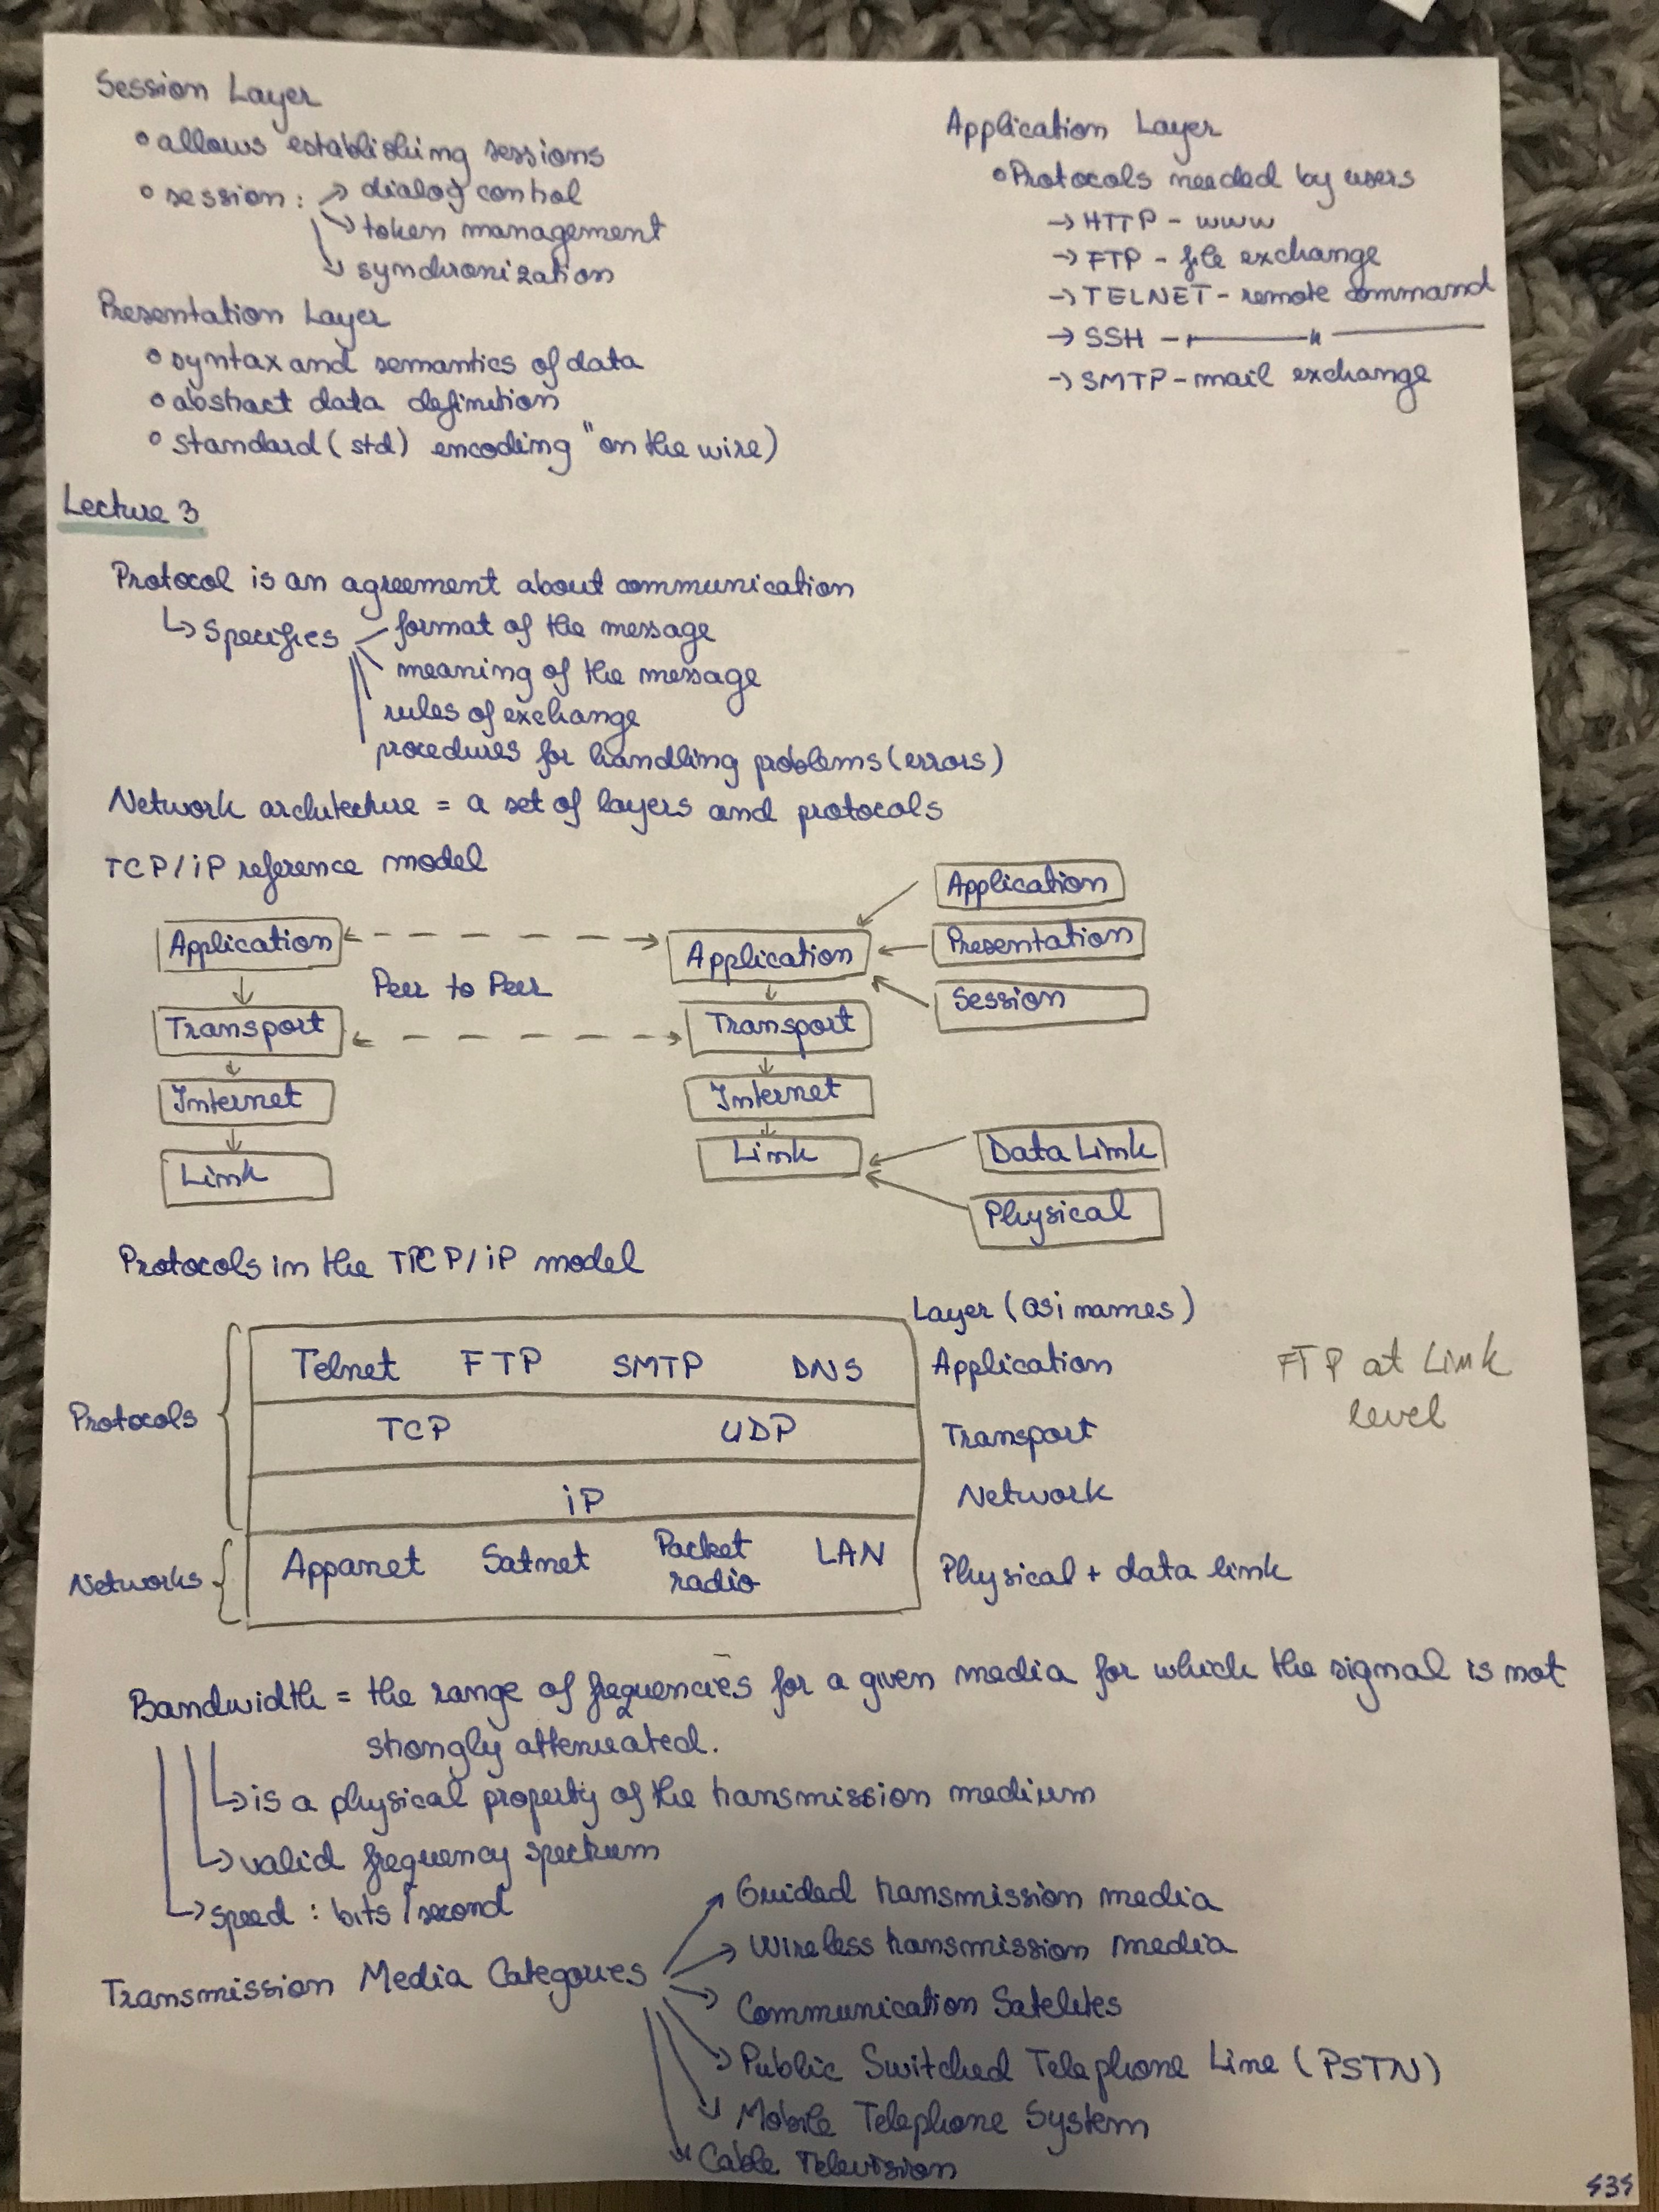 Session Layer
allows establishing sessions
session: → dialog control
→ token management
→ synchronization
Presentation Layer
syntax and semantics of data
abstract data definition
standard (std) encoding "on the wire)
Application Layer
Protocols needed by users
→ HTTP - www
→ FTP - file exchange
→ TELNET - remote command
→ SSH - — " —
→ SMTP - mail exchange
Lecture 3
Protocol is an agreement about communication
↳ Specifies format of the message
meaning of the message
rules of exchange
procedures for handling problems (errors)
Network architecture = a set of layers and protocols
TCP/iP reference model
Application
Peer to Peer
Transport
Internet
Link
Application
Transport
Internet
Link
Application
Presentation
Session
Data Link
Physical
Protocols in the TPCP/iP model
Layer (osi names)
Protocols
Telnet FTP SMTP DNS Application
TCP UDP Transport
iP Network
Networks
Appanet Satnet Packet radio LAN Physical + data link
FTP at Link
level
Bandwidth = the range of frequencies for a given media for which the signal is not
strongly attenuated.
↳ is a physical property of the transmission medium
↳ valid frequency spectrum
↳ speed: bits/second
Transmission Media Categories
Guided transmission media
Wireless transmission media
Communication Satelites
Public Switched Telephone Line (PSTN)
Mobile Telephone System
Cable Television